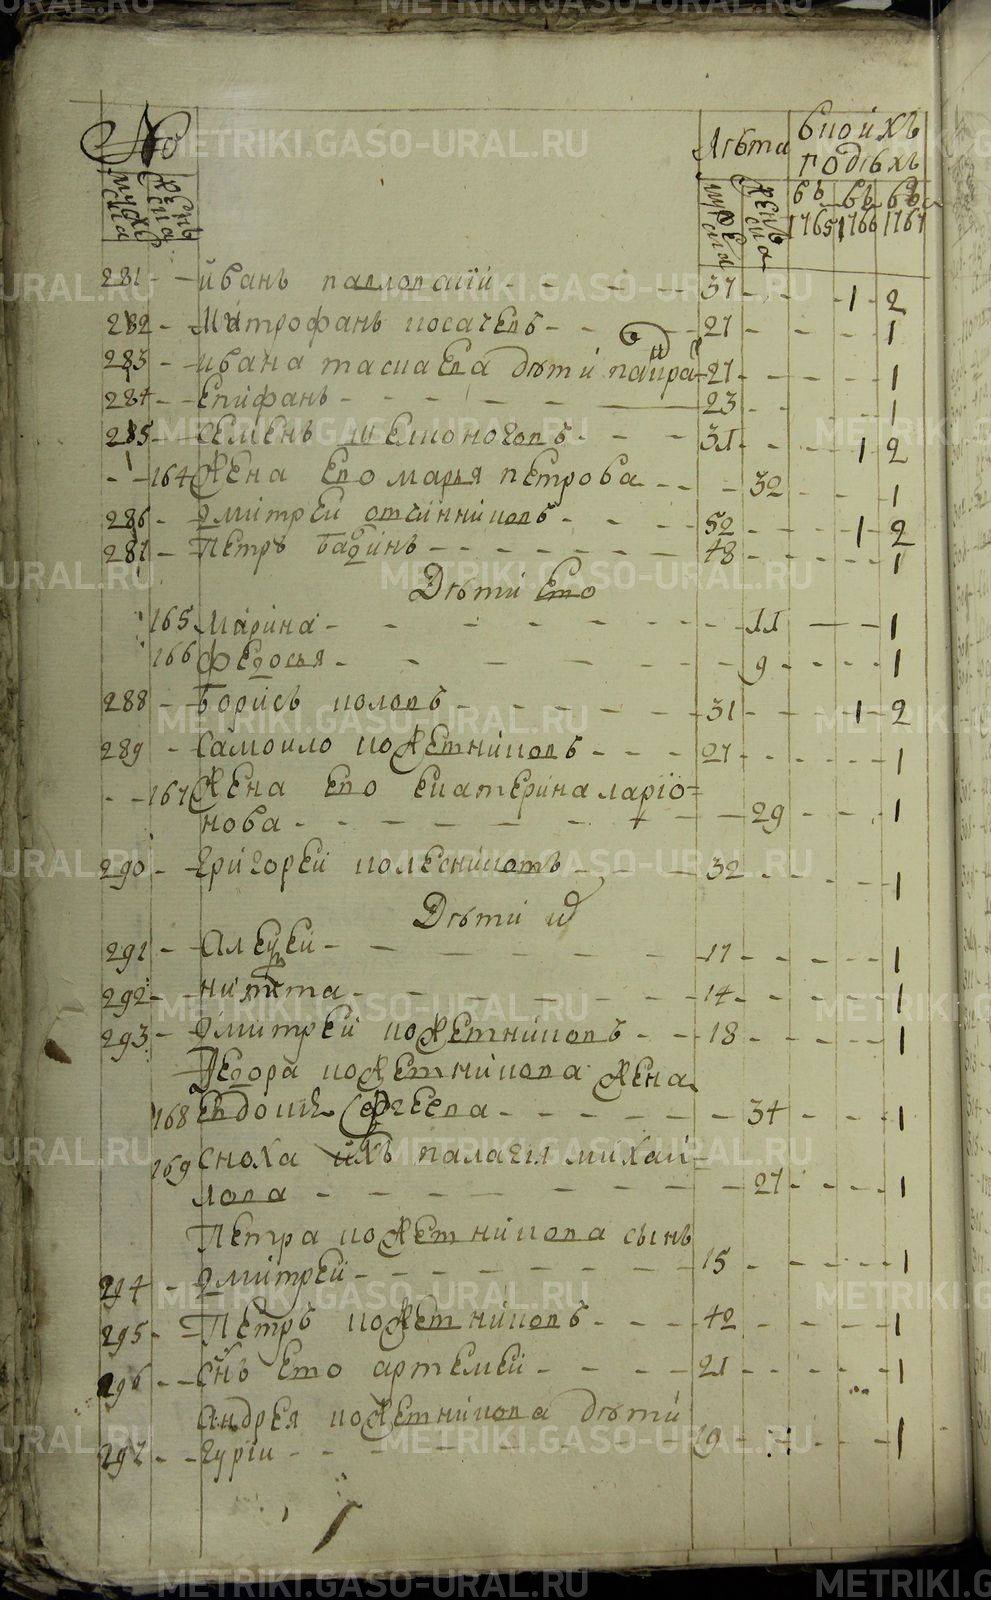 №
Лѣта
в коихъ годѣхъ
мужеска
женска
мужеска
женска
въ 1765
въ 1766
въ 1767
281 иванъ павловский 37 1 2
282 Митрофанъ косачевъ 27 1
283 ивана таскаева дѣти 27 1
284 Епифанъ 23 1
285 семенъ шелконоговъ 31 1 2
164 Жена ево марья петрова 32 1
286 Дмитрей овчинниковъ 52 1 2
287 Петръ бабинъ 48 1
Дѣти Ево
165 Марина 11 1
166 Федосья 9 1
288 Борисъ поповъ 31 1 2
289 самоило кожевниковъ 27 1
167 Жена ево екатерина ларио=
нова 29 1
290 Григорей колесниковъ 32 1
Дѣти их
291 Алексей 17 1
292 никита 14 1
293 Дмитрей кожевниковъ 18 1
Федора кожевникова жена
168 Евдокия сергеева 34 1
169 сноха ихъ палагея михай=
лова 27 1
Петра кожевникова сынъ
294 Дмитрей 15 1
295 Петръ кожевниковъ 42 1
296 снъ Ево артемей 21 1
Андрея кожевникова дѣти
297 гурий 19 1
METRIKI.GASO-URAL.RU